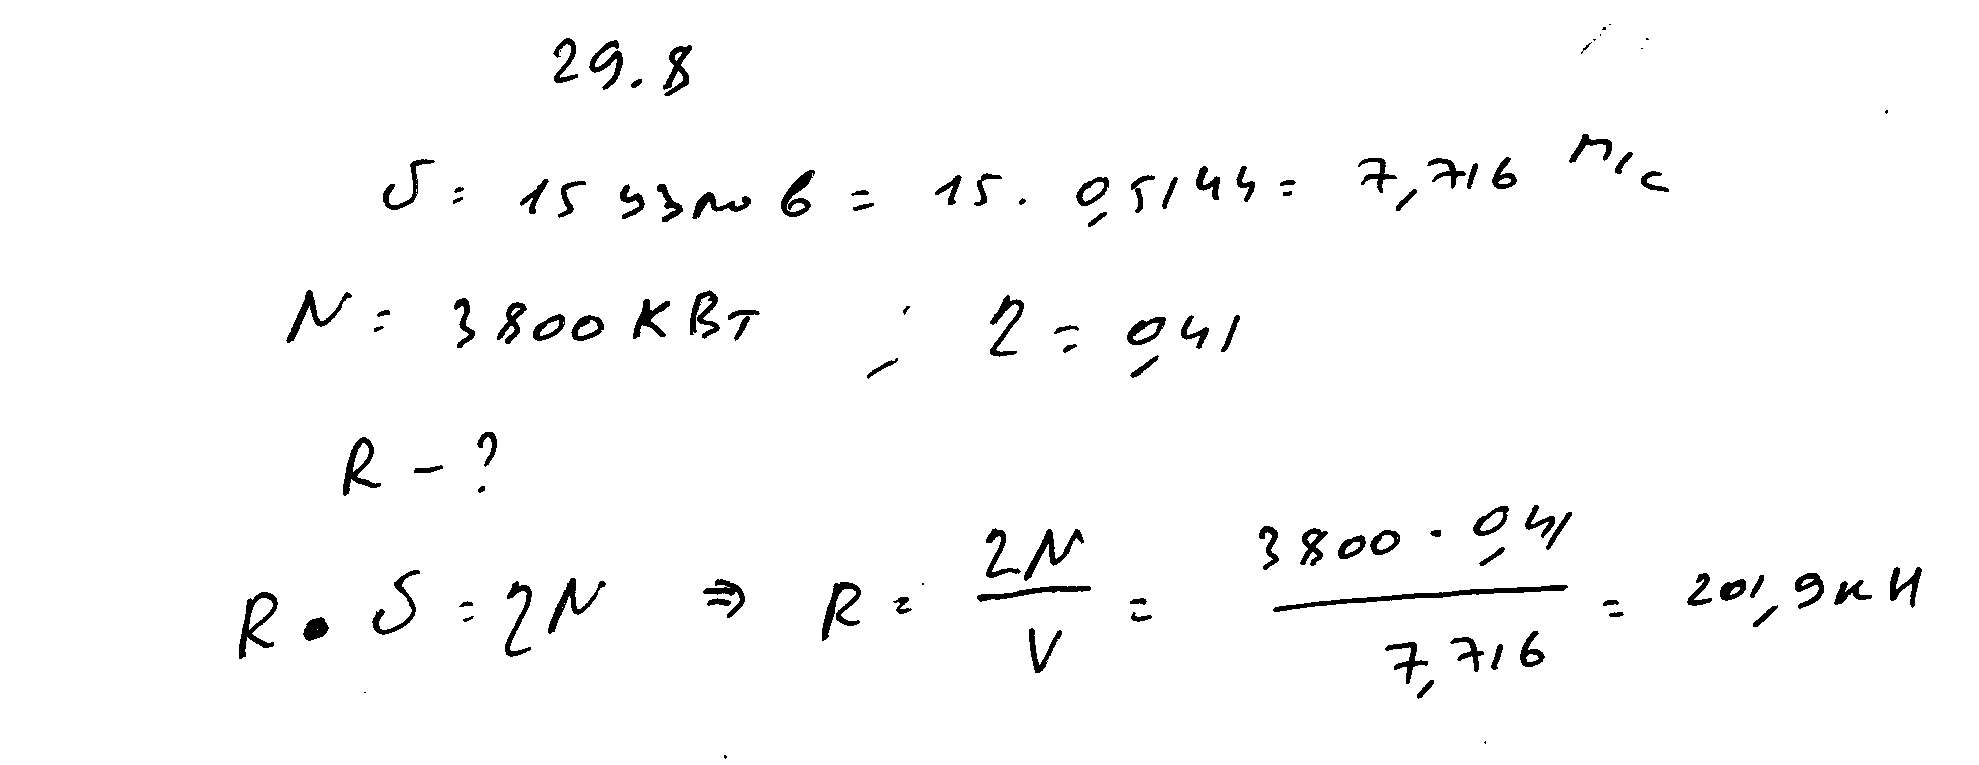 29.8
υ = 15 узлов = 15 · 0,5144 = 7,716 м/с
N = 3800 кВт ; η = 0,41
R - ?
R • υ = ηN ⇒ R = ηN / V = 3800 · 0,41 / 7,716 = 201,9 кН